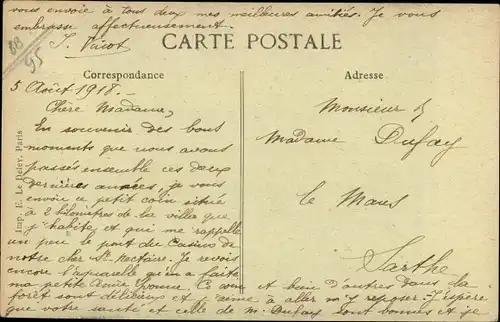 vous envoie à tous deux mes meilleures amitiés. Je vous
embrasse affectueusement.
CARTE POSTALE
Correspondance
Adresse
5 Août 1918. -
Chère Madame,
En souvenir des bons
moments que nous avons
passés ensemble ces deux
dernières années, je vous
envoie ce petit coin situé
à 2 kilomètres de la ville que
j'habite et qui me rappelle
un peu le pont du Casino de
notre cher St Nectaire. Je revois
encore l'aquarelle qu'en a faite
ma petite Amie Yvonne. Ce coin et bien d'autres dans la
forêt sont délicieux et j'aime à aller m'y reposer. J'espère
que votre santé et celle de Mr Dufay sont bonnes et je
Monsieur &
Madame Dufay
le Mans
Sarthe
Imp. E. Le Deley, Paris